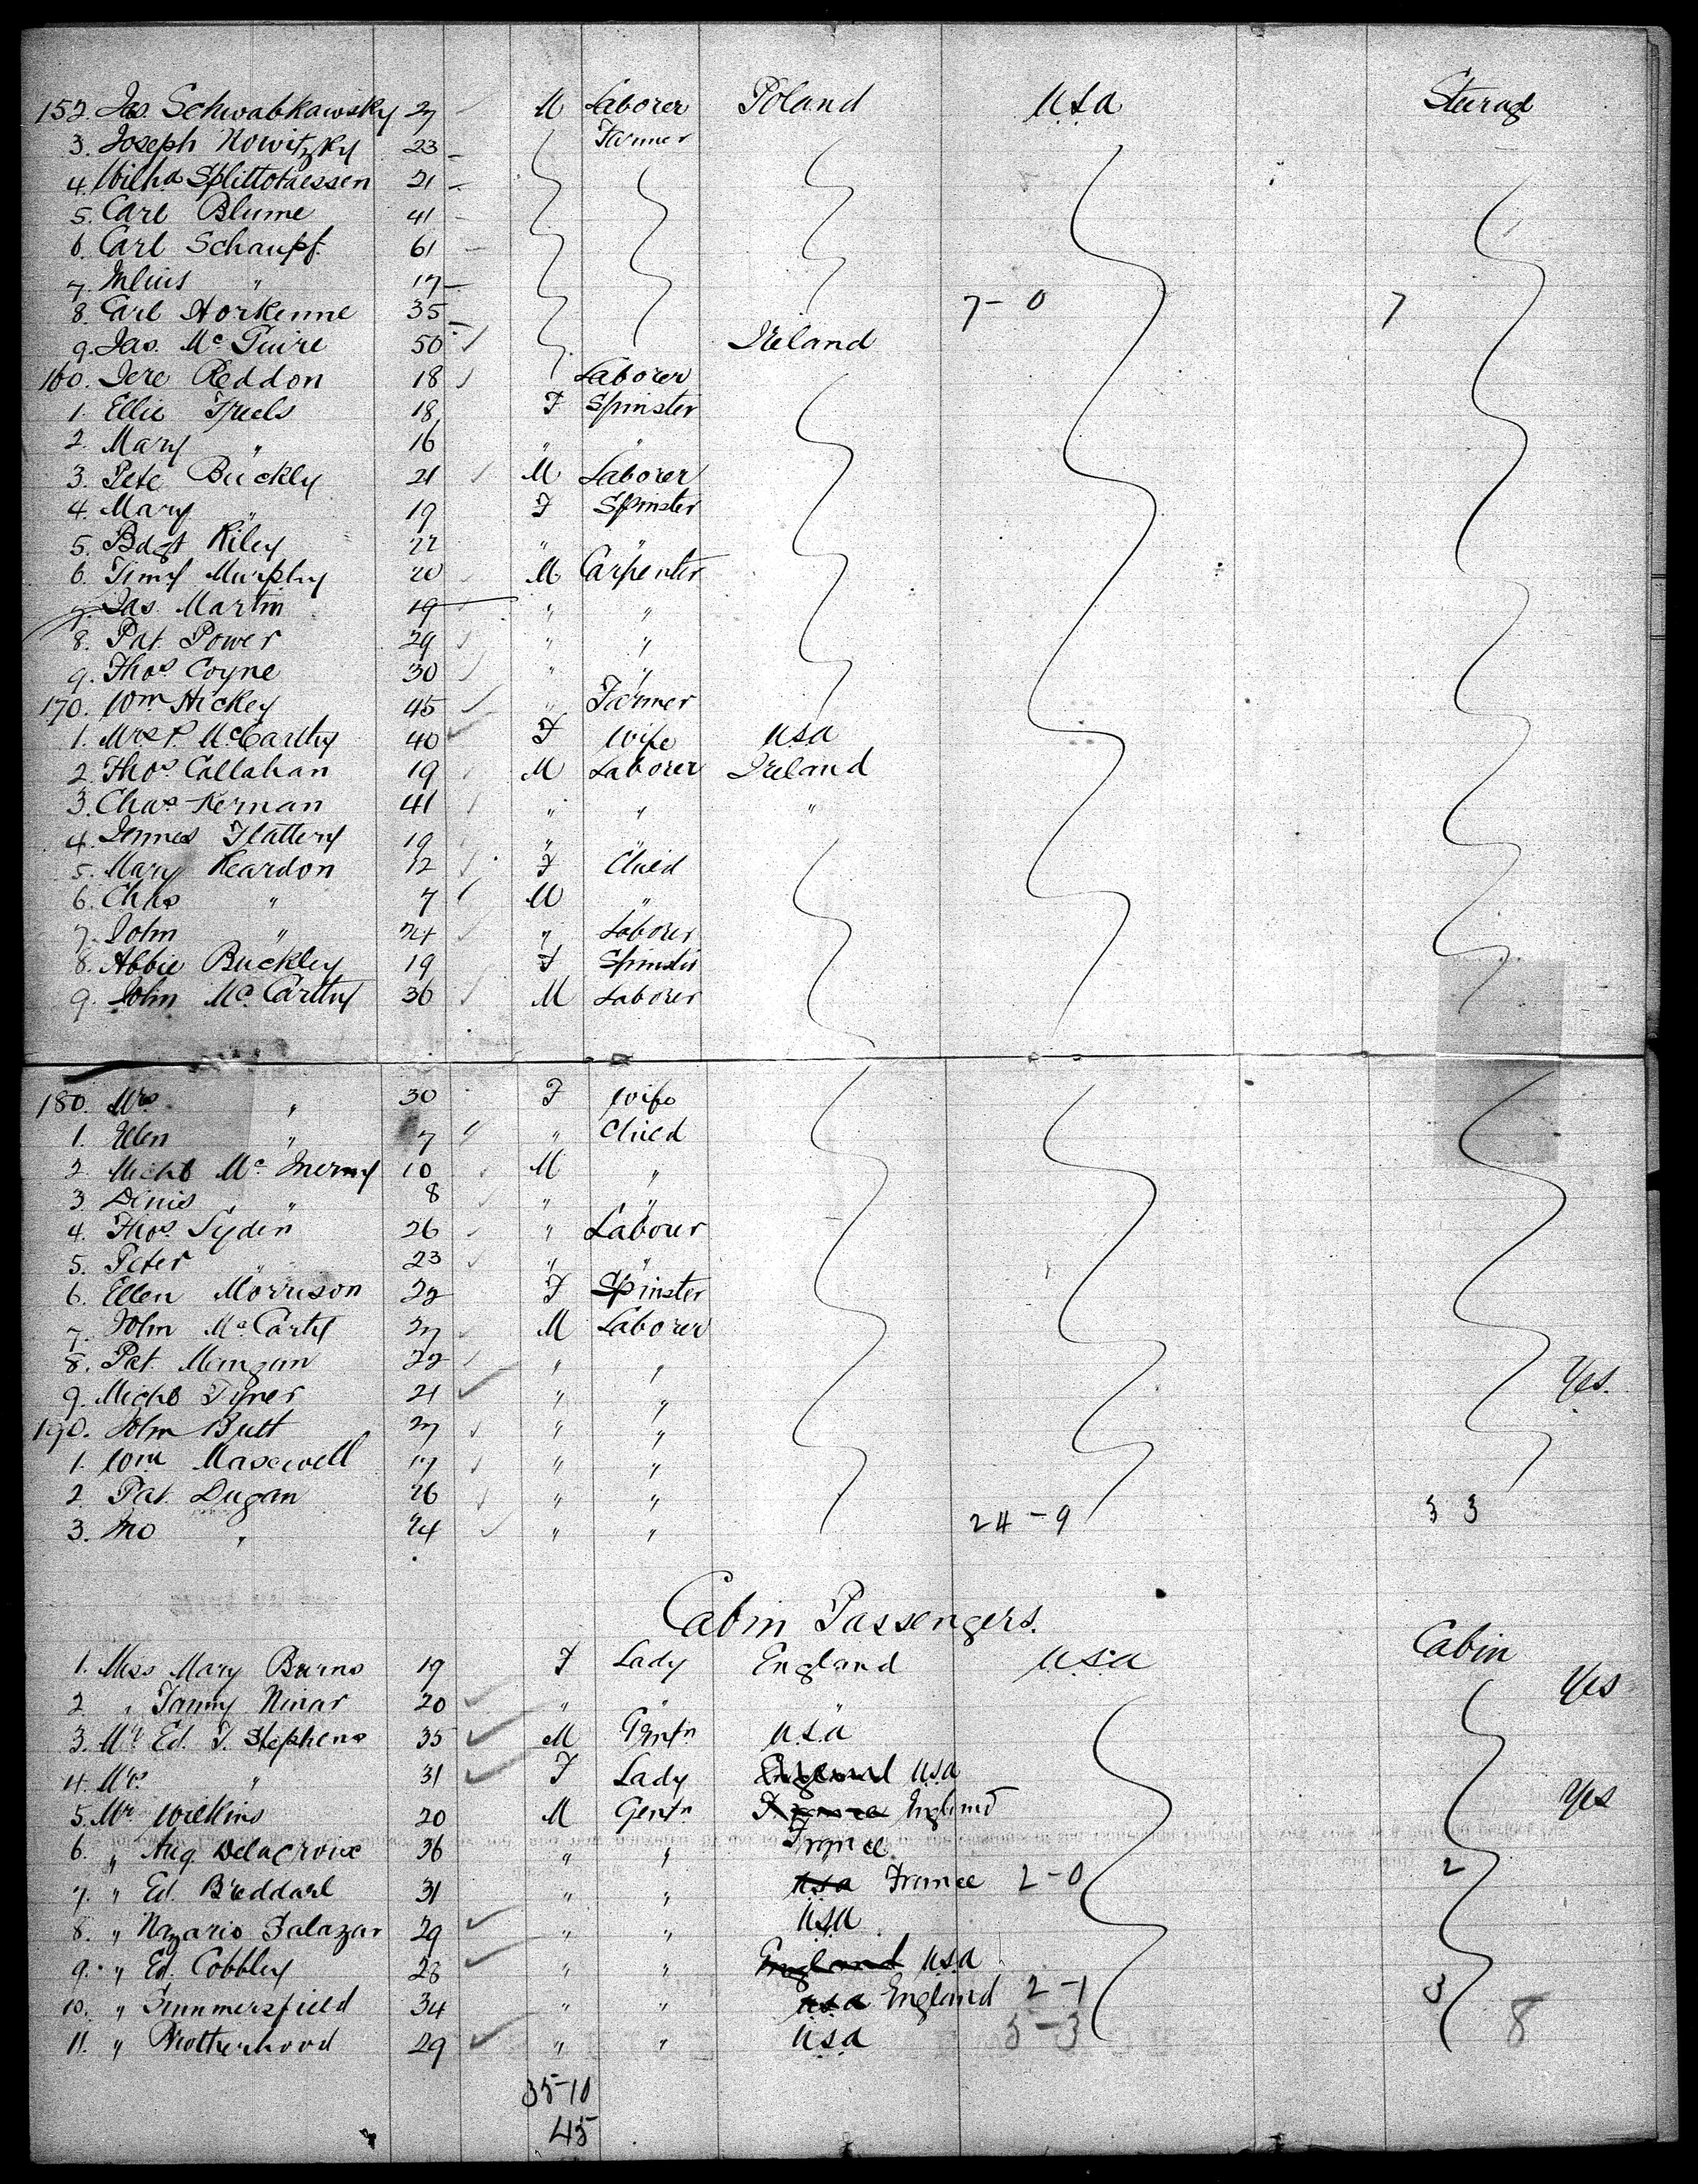 152. Jas. Schwabkawsky 27 M Laborer Poland U.S.A Steerag
3. Joseph Nowitzky 23 Farmer
4. Wilhd Splittotaessen 21
5. Carl Blume 41
6. Carl Schaupf. 61
7. Julius " 17
8. Carl Horkenne 35 7-0 7
9. Jas. Mc Guire 50 Ireland
160. Jere Reddon 18 Laborer
1. Ellie Freels 18 F Spinster
2. Mary " 16 " "
3. Pete Buckly 21 M Laborer
4. Mary " 19 F Spinster
5. Bdgt Riley 22 " "
6. Timy Murphy 20 M Carpenter
7. Jas. Martin 19 " "
8. Pat. Power 29 " "
9. Thos Coyne 30 " "
170. Wm Hickey 45 " Farmer
1. Mrs P. McCarthy 40 F Wife USA
2. Thos. Callahan 19 M Laborer Ireland
3. Chas Kernan 41 " " "
4. Dennes Flattery 19 " "
5. Mary Reardon 12 F Child
6. Chas " 7 M "
7. John " 24 " Laborer
8. Abbie Buckley 19 F Spinster
9. John Mc Carthy 36 M Laborer
180. Mrs " 30 F Wife
1. Ellen " 7 " Child
2. Michl Mc Inerny 10 M "
3. Dinis " 8 " "
4. Thos Lyden 26 " Labour
5. Peter " 23 " "
6. Ellen Morrison 22 F Spinster
7. John McCarty 27 M Laborer
8. Pat. Mangan 22 " "
9. Michl Tyner 21 " " Yes.
190. John Butt 27 " "
1. Wm Maxwell 17 " "
2. Pat. Dugan 26 " "
3. Jno " 24 " " 24-9 33
Cabin Passengers.
1. Miss Mary Burns 19 F Lady England U.S.A Cabin
2. " Fanny Ninar 20 " " " Yes
3. Mr Ed. T. Stephens 35 M Gentn U.S.A
4. Mrs " 31 F Lady England USA
5. Mr Wilkins 20 M Gentn France England Yes
6. " Aug. Delacroix 36 " " France
7. " Ed. Breddarl 31 " " USA France 2-0 2
8. " Nazario Salazar 29 " " USA
9. " Ed. Cobbley 28 " " England USA
10. " Summersfield 34 " " USA England 2-1 3
11. " Brotherhood 29 " " USA 5-3 8
35-10
45